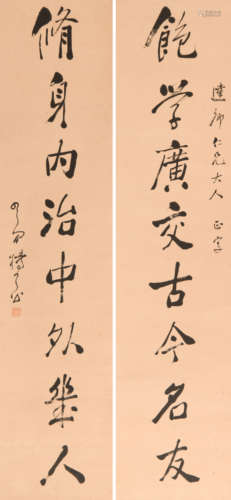 達師仁兄大人 正字
飽学廣交古今名友
脩身内治中外幾人